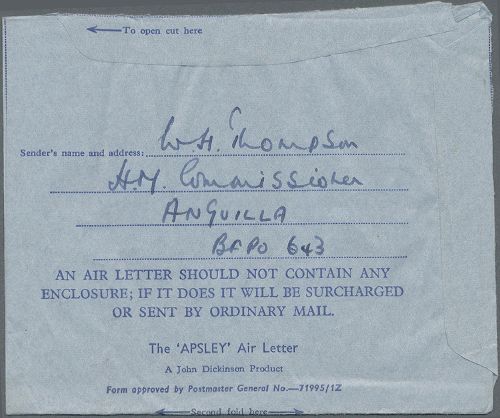 To open cut here
Sender's name and address: W.H. Thompson
H.M. Commissioner
ANGUILLA
BFPO 643
AN AIR LETTER SHOULD NOT CONTAIN ANY
ENCLOSURE; IF IT DOES IT WILL BE SURCHARGED
OR SENT BY ORDINARY MAIL.
The 'APSLEY' Air Letter
A John Dickinson Product
Form approved by Postmaster General No.—71995/1Z
Second fold here